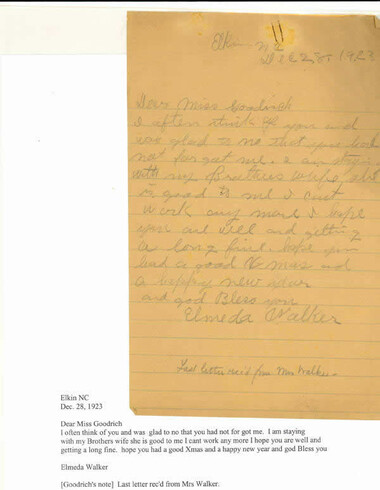 Elkin NC
Dec 28, 1923
Dear Miss Goodrich
I often think of you and
was glad to no that you had
not for got me. I am staying
with my Brothers wife she
is good to me I cant
work any more I hope
you are well and getting
a long fine. hope you
had a good Xmas and
a happy new year
and god Bless you
Elmeda Walker
Last letter rec'd from Mrs Walker.
Elkin NC
Dec. 28, 1923
Dear Miss Goodrich
I often think of you and was glad to no that you had not for got me. I am staying
with my Brothers wife she is good to me I cant work any more I hope you are well and
getting a long fine. hope you had a good Xmas and a happy new year and god Bless you
Elmeda Walker
[Goodrich's note] Last letter rec'd from Mrs Walker.